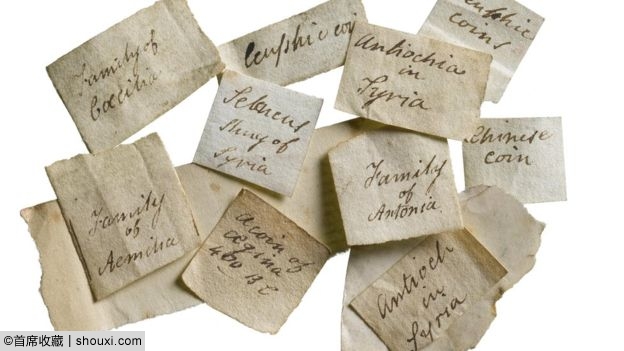 Family of
Cœcilia
Ceuphic coin
Antiochia
in
Syria
Ceuphic
coins
Seleucus
King of
Syria
Chinese
coin
Family
of
Aemilia
Family
of
Antonia
a coin of
Œgina
400 BC
Antioch
in
Syria
©首席收藏 | shouxi.com